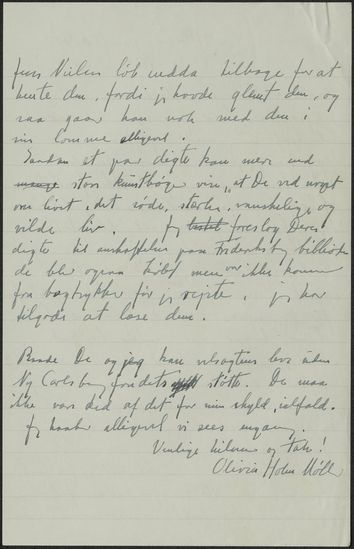 Jens Nielsen løb nedda tilbage for at
hente den, fordi jeg havde glemt den, og
saa gaar han nok med den i
sin Lomme alligevel.
Saadan et par digte kan mere end
mange store kunstbøger vise, at De ved noget
om livet, det røde, stærke, vanskelige og
vilde liv. Jeg foreslog Deres
digte til anskaffelse paa Frederiksberg bibliotek
de blev ogsaa købt men var ikke kommen
fra bogtrykker før jeg rejste, jeg har
tilgode at læse dem.
Baade De og jeg kan velsagtens leve uden
Ny Carlsbergfondets støtte. De maa
ikke være ked af det for min skyld, ialfald.
Jeg haaber alligevel vi sees engang.
Venlige hilsner og Tak!
Olivia Holm Møller